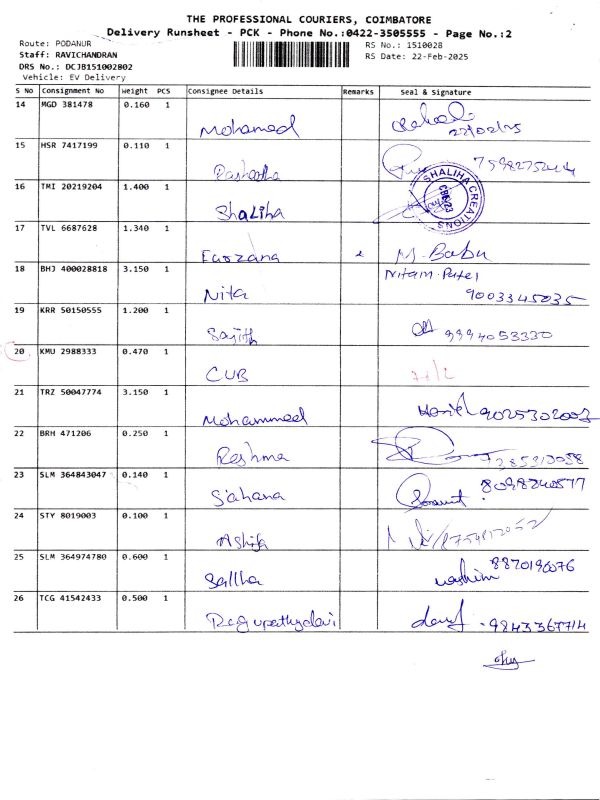 THE PROFESSIONAL COURIERS, COIMBATORE
Delivery Runsheet - PCK - Phone No.:0422-3505555 - Page No.:2
Route: PODANUR
RS No.: 1510028
Staff: RAVICHANDRAN
RS Date: 22-Feb-2025
DRS No.: DCJB151002802
Vehicle: EV Delivery
S No Consignment No Weight PCS Consignee Details Remarks Seal & Signature
14 MGD 381478 0.160 1 Mohamed
22/02/25
15 HSR 7417199 0.110 1
16 TMI 20219204 1.400 1 Shaliha
SHALIHA CREATIONS
17 TVL 6687628 1.340 1 Farzana M. Babu
18 BHJ 400028818 3.150 1 Nita
9003345035
19 KRR 50150555 1.200 1 Sajith 9994053330
20 KMU 2988333 0.470 1 CUB
21 TRZ 50047774 3.150 1 Mohammed 9025302003
22 BRH 471206 0.250 1 Reshma
23 SLM 364843047 0.140 1 Sahana 8098240577
24 STY 8019003 0.100 1 Ashifa
25 SLM 364974780 0.600 1 Sallha 8870196076
26 TCG 41542433 0.500 1 Regupathydevi 9843367714